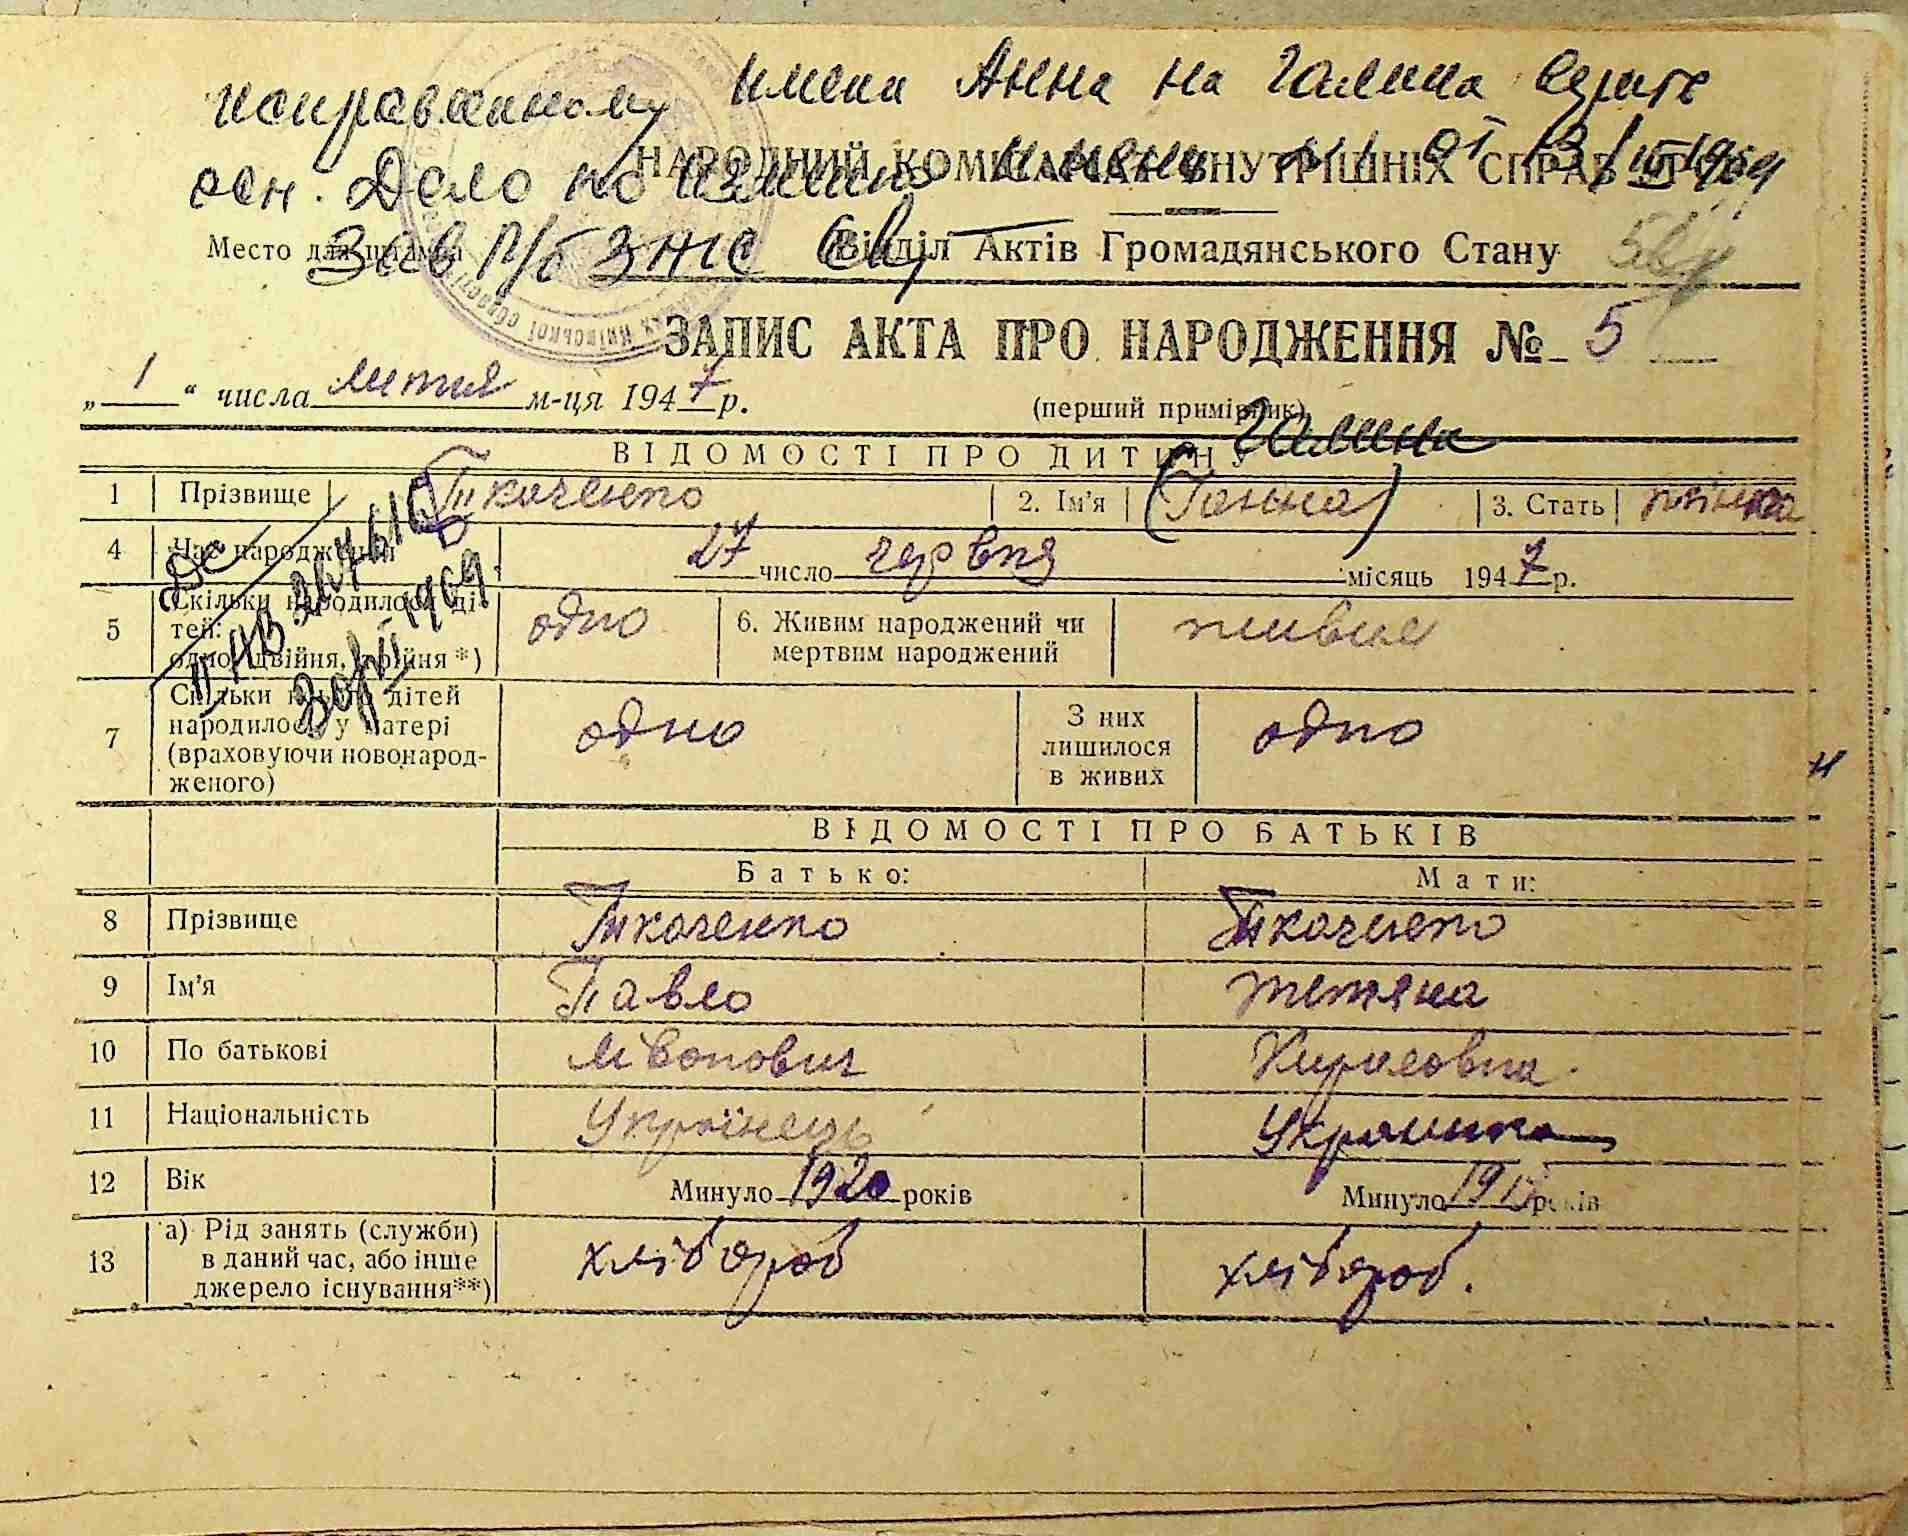 исправленному имени Анна на Галина верить
осн. Дело по измен. имени №1 от 3/III 1969
НАРОДНИЙ КОМІСАРІАТ ВНУТРІШНІХ СПРАВ
Место для штампа Зав П/б ЗАГС
Відділ Актів Громадянського Стану
ЗАПИС АКТА ПРО НАРОДЖЕННЯ № 5
„ 1 “ числа лютня м-ця 1947 р.
(перший примірник)
Галина
ВІДОМОСТІ ПРО ДИТИНУ
1 Прізвище Ткаченко 2. Ім'я (Ганна) 3. Стать жінка
4 Час народження 27 число червня місяць 1947 р.
5 Скільки народилося ді-
тей:
одно, двійня, трійня *) одно 6. Живим народжений чи
мертвим народжений живие
7 Скільки всього дітей
народилося у матері
(враховуючи новонарод-
женого) одно З них
лишилося
в живих одно
ВІДОМОСТІ ПРО БАТЬКІВ
Батько: Мати:
8 Прізвище Ткаченко Ткаченко
9 Ім'я Павло Тетяна
10 По батькові Лівонович Кириловна
11 Національність Українець Українка
12 Вік Минуло 1920 років Минуло років
13 а) Рід занять (служби)
в даний час, або інше
джерело існування**) хлібороб хлібороб.